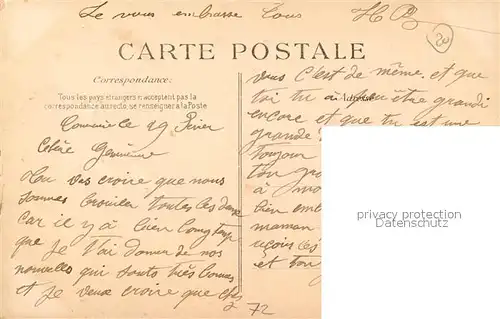 Je vous embrasse tous H B
20
CARTE POSTALE
Correspondance:
Tous les pays étrangers n'acceptent pas la
correspondance au recto, se renseigner à la Poste
Adresse
le 29
Chère
Tu vas croire que nous
sommes brouiller toutes les deux
car il y à bien longtemps
que je t'ai donner de nos
nouvelles qui sont très bonnes
et je veux croire que chez
vous c'est de même et que
toi tu a être grandi
encore et que tu est une
grande
toujour
ton
à
bien
maman
et
72
privacy protection
Datenschutz